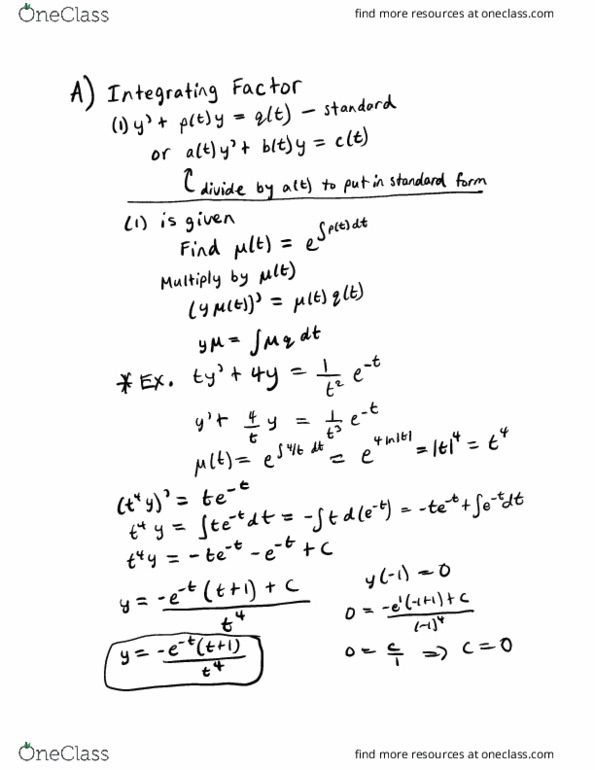 OneClass
find more resources at oneclass.com
A) Integrating Factor
(1) y' + p(t)y = q(t) — standard
or a(t)y' + b(t)y = c(t)
divide by a(t) to put in standard form
(1) is given
Find μ(t) = e^∫p(t)dt
Multiply by μ(t)
(yμ(t))' = μ(t)q(t)
yμ = ∫μq dt
* Ex. ty' + 4y = 1/t² e^-t
y' + 4/t y = 1/t³ e^-t
μ(t) = e^∫4/t dt = e^4ln|t| = |t|⁴ = t⁴
(t⁴y)' = te^-t
t⁴y = ∫te^-t dt = -∫t d(e^-t) = -te^-t + ∫e^-t dt
t⁴y = -te^-t - e^-t + C
y = (-e^-t (t+1) + C)/t⁴
y = (-e^-t (t+1))/t⁴
y(-1) = 0
0 = (-e^1(-1+1) + C)/(-1)⁴
0 = C/1 ⇒ C = 0
OneClass
find more resources at oneclass.com